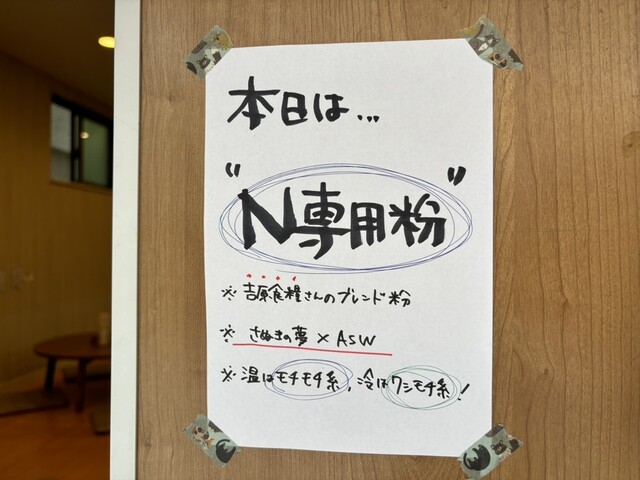 本日は...
"N専用粉"
※吉原食糧さんのブレンド粉
※さぬきの夢×ASW
※温はモチモチ系,冷はワシモチ系!